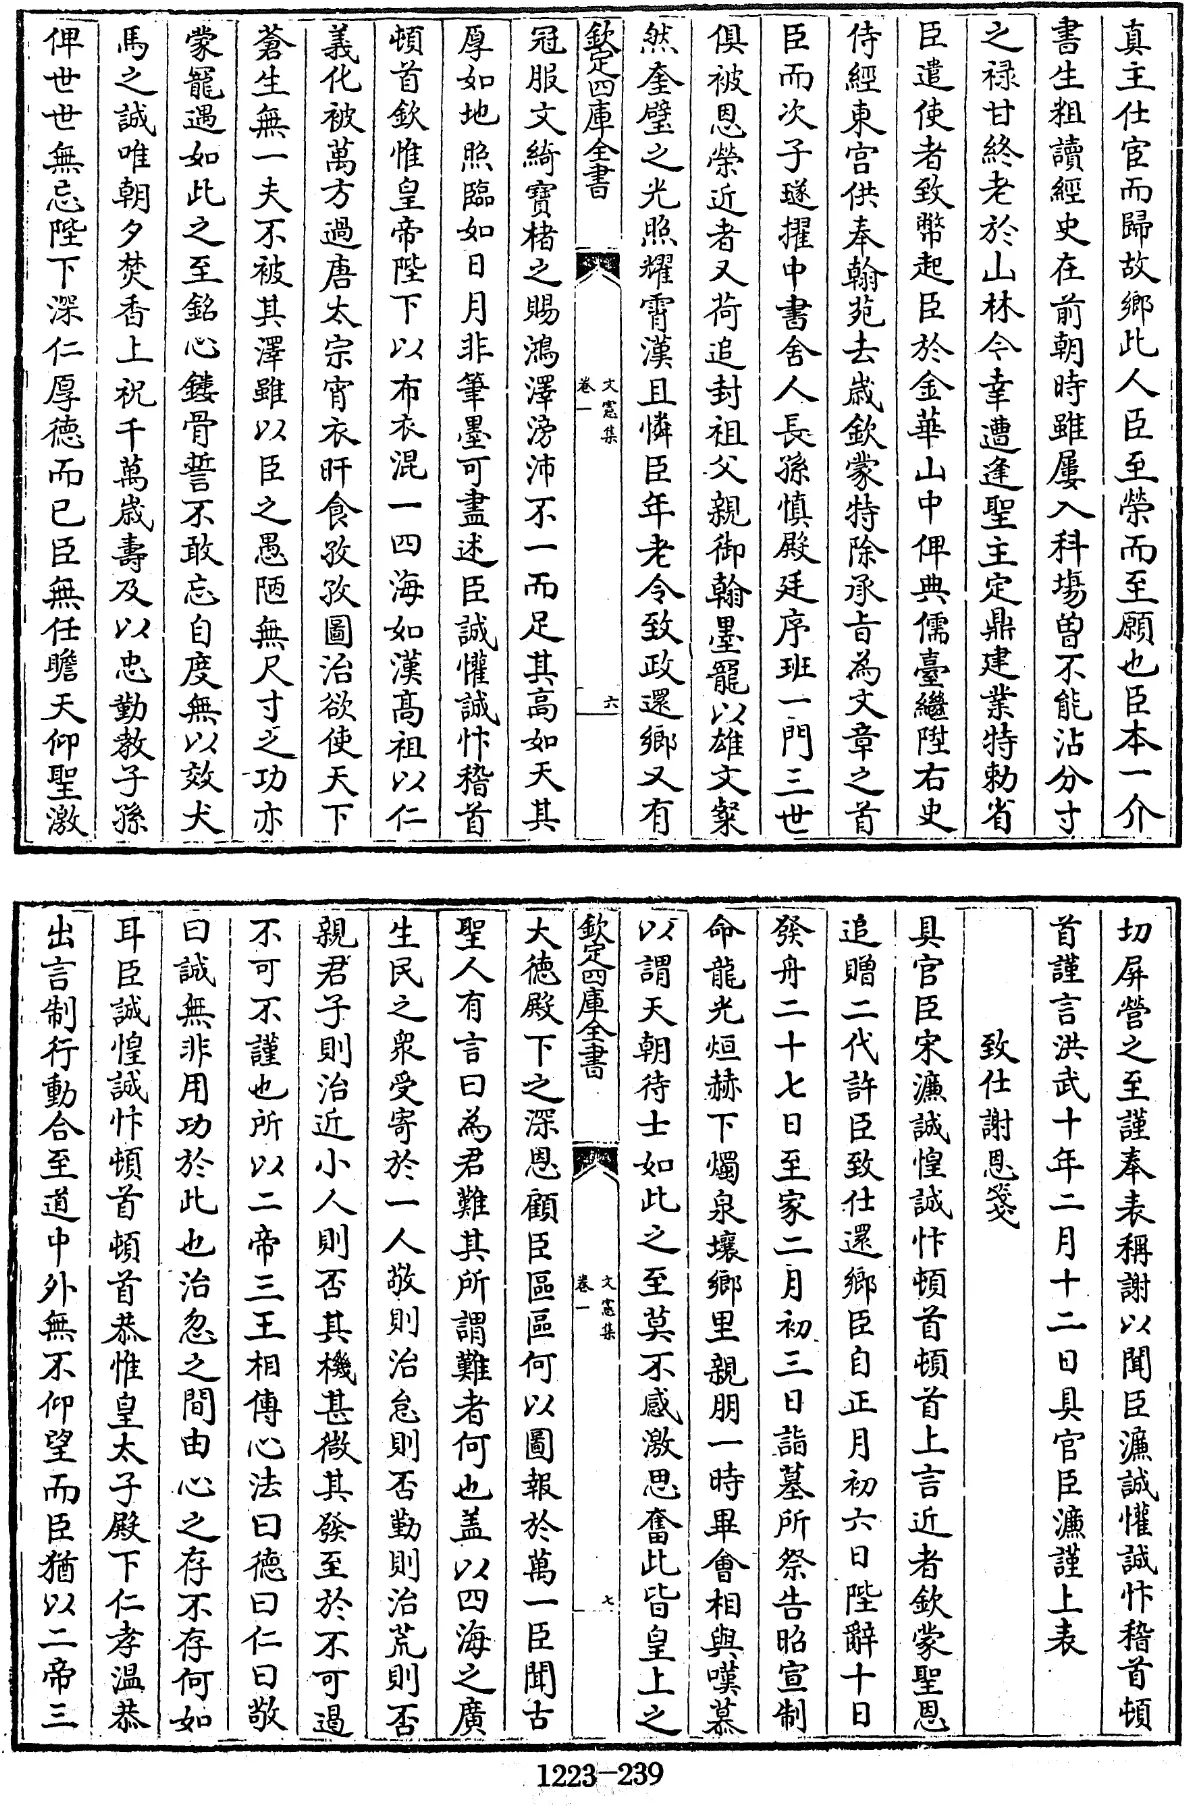 真主仕宦而歸故鄉此人臣至榮而至願也臣本一介
書生粗讀經史在前朝時雖屢入科場曽不能沾分寸
之禄甘終老於山林今幸遭逢聖主定鼎建業特勅省
臣遣使者致幣起臣於金華山中俾典儒臺繼陞右史
侍經東宫供奉翰苑去歲欽蒙特除承㫖為文章之首
臣而次子璲擢中書舍人長孫慎殿廷序班一門三世
俱被恩榮近者又荷追封祖父親御翰墨寵以雄文粲
然奎璧之光照耀霄漢且憐臣年老令致政還鄉又有
欽定四庫全書
文憲集
卷一
六
冠服文綺寶楮之賜鴻澤滂沛不一而足其高如天其
厚如地照臨如日月非筆墨可盡述臣誠懽誠忭稽首
頓首欽惟皇帝陛下以布衣混一四海如漢髙祖以仁
義化被萬方過唐太宗宵衣旰食孜孜圖治欲使天下
蒼生無一夫不被其澤雖以臣之愚陋無尺寸之功亦
蒙寵遇如此之至銘心鏤骨誓不敢忘自度無以效犬
馬之誠唯朝夕焚香上祝千萬歳壽及以忠勤教子孫
俾世世無忘陛下深仁厚徳而已臣無任瞻天仰聖激
切屏營之至謹奉表稱謝以聞臣濂誠懽誠忭稽首頓
首謹言洪武十年二月十二日具官臣濂謹上表
致仕謝恩箋
具官臣宋濂誠惶誠忭頓首頓首上言近者欽蒙聖恩
追贈二代許臣致仕還鄉臣自正月初六日陛辭十日
發舟二十七日至家二月初三日詣墓所祭告昭宣制
命龍光烜赫下燭泉壤鄉里親朋一時畢會相與嘆慕
以謂天朝待士如此之至莫不感激思奮此皆皇上之
欽定四庫全書
文憲集
卷一
七
大徳殿下之深恩顧臣區區何以圖報於萬一臣聞古
聖人有言曰為君難其所謂難者何也盖以四海之廣
生民之衆受寄於一人敬則治怠則否勤則治荒則否
親君子則治近小人則否其機甚微其發至於不可遏
不可不謹也所以二帝三王相傳心法曰徳曰仁曰敬
曰誠無非用功於此也治忽之間由心之存不存何如
耳臣誠惶誠忭頓首頓首恭惟皇太子殿下仁孝温恭
出言制行動合至道中外無不仰望而臣猶以二帝三
1223-239